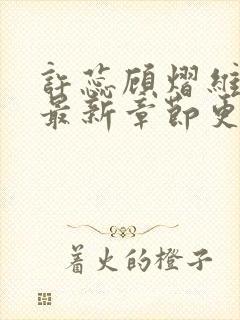 許蕊顾熠維
最新章節更
着火的橙子